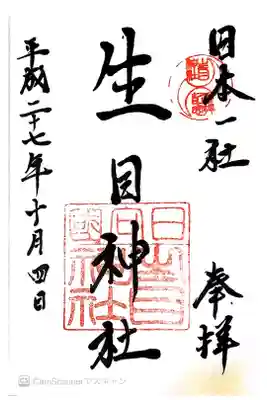 日本一社
奉拝
生目神社
日向国
生目
神社
平成二十七年十月四日
CamScanner でスキャン